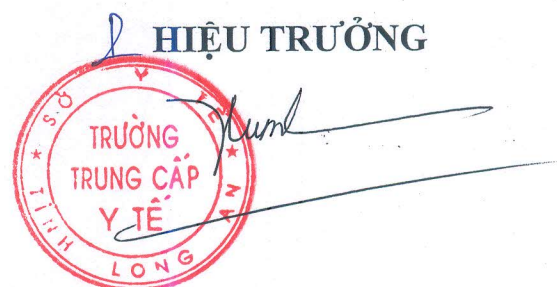 HIỆU TRƯỞNG
SỞ Y TẾ
TRƯỜNG
TRUNG CẤP
Y TẾ
★ TỈNH LONG AN ★